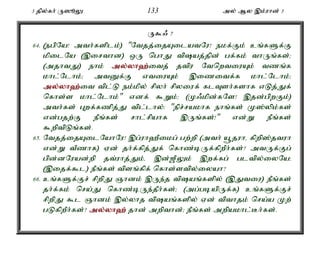 3 தில்கர் ருஸூலு 133 அல் ஆல இம்ரான் 3
ருகூஃ 7
64. (நபியே! அவர்களிடம்) "வேதத்தையுடையவரே! நமக்கும் உங்களுக்கு
மிடையே (இசைவான) ஒரு பொது விஷயத்தின் பக்கம் வாருங்கள்;
(அதாவது) நாம் அல்லாஹ்வைத் தவிர வேறெவரையும் வணங்க
மாட்டோம்; அவனுக்கு எவரையும் இணைவைக்க மாட்டோம்;
அல்லாஹ்வை விட்டு நம்மில் சிலர் சிலரைக் கடவுளர்களாக எடுத்துக்
கொள்ள மாட்டோம்" எனக் கூறும்; (முஃமின்களே! இதன்பிறகும்)
அவர்கள் புறக்கணித்து விட்டால்: "நிச்சயமாக நாங்கள் முஸ்லிம்கள்
என்பதற்கு நீங்கள் சாட்சியாக இருங்கள்!" என்று நீங்கள்
கூறிவிடுங்கள்.
65. வேதத்தையுடையோரே! இப்ராஹீமைப் பற்றி (அவர் யூதரா, கிறிஸ்தவரா
என்று வீணாக) ஏன் தர்க்கித்துக் கொண்டிருக்கிறீர்கள்? அவருக்குப்
பின்னரேயன்றி தவ்ராத்தும், இன்ஜீலும் இறக்கப் படவில்லையே
(இதைக்கூட) நீங்கள் விளங்கிக் கொள்ளவில்லையா?
66. உங்களுக்குச் சிறிது ஞானம் இருந்த விஷயங்களில் (இதுவரை) நீங்கள்
தர்க்கம் செய்து கொண்டிருந்தீர்கள்; (அப்படியிருக்க) உங்களுக்குச்
சிறிது கூட ஞானம் இல்லாத விஷயங்களில் ஏன் விவாதம் செய்ய முற்
படுகிறீர்கள்? அல்லாஹ் தான் அறிவான்; நீங்கள் அறியமாட்டீர்கள்.